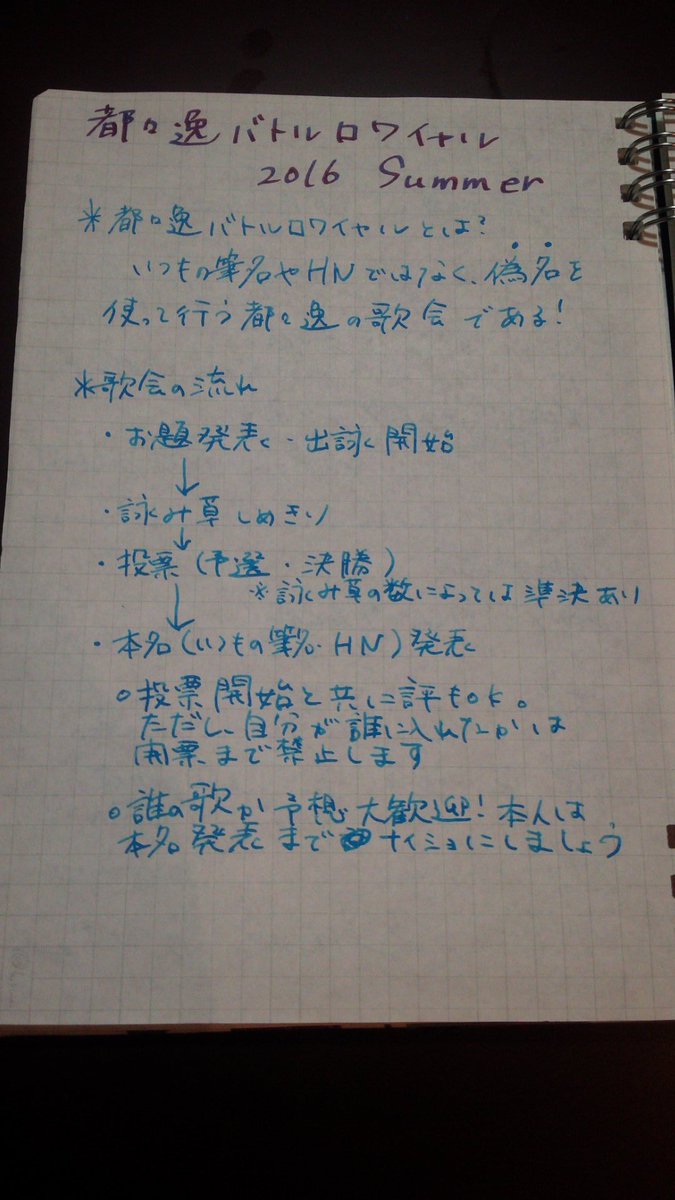 都々逸バトルロワイヤル
2016 Summer
*都々逸バトルロワイヤルとは?
いつもの筆名やHNではなく、偽名を
使って行う都々逸の歌会である!
*歌会の流れ
・お題発表・出詠開始
↓
・詠み草しめきり
↓
・投票(予選・決勝)
※詠み草の数によっては準決あり
↓
・本名(いつもの筆名・HN)発表
○投票開始と共に評もOK。
ただし、自分が誰に入れたかは
開票まで禁止します
○誰の歌か予想大歓迎!本人は、
本名発表までナイショにしましょう